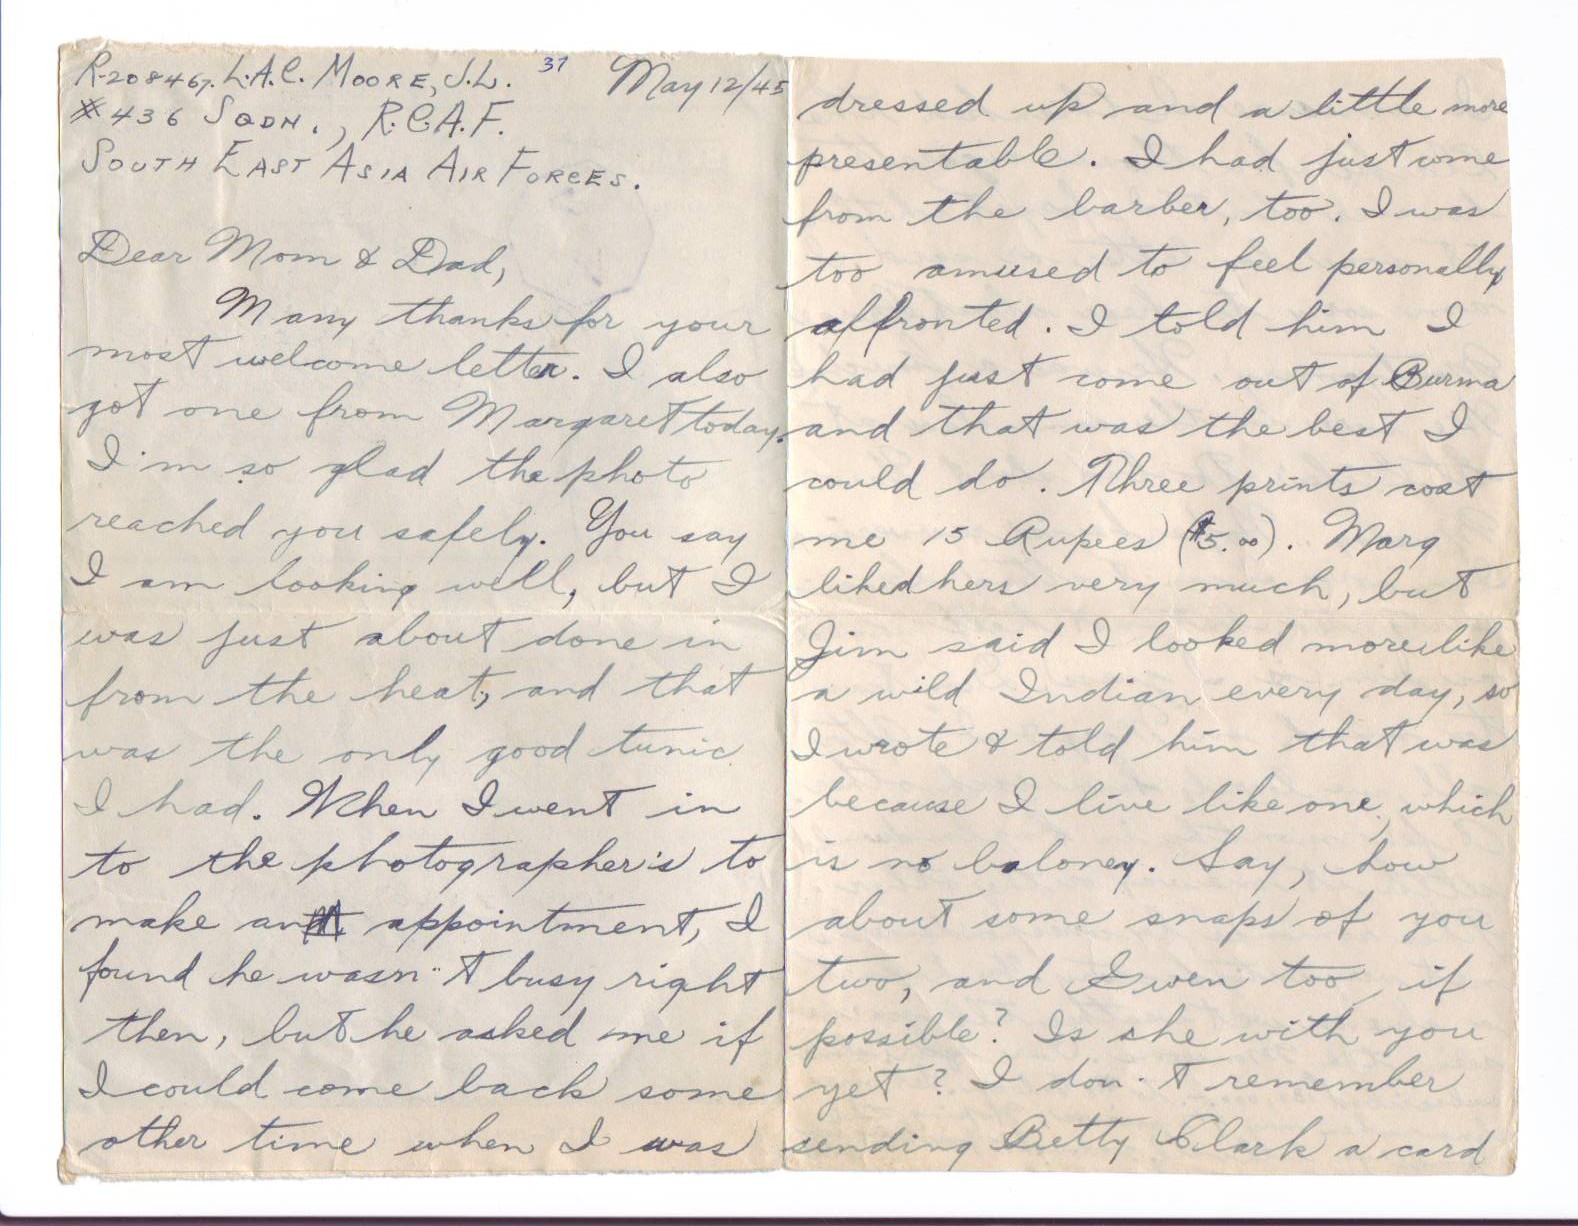 R-208467. L.A.C. MOORE, J.L. 37 May 12/45
#436 SQDN., R.C.A.F.
SOUTH EAST ASIA AIR FORCES.
Dear Mom & Dad,
Many thanks for your
most welcome letter. I also
got one from Margaret today.
I'm so glad the photo
reached you safely. You say
I am looking well, but I
was just about done in
from the heat, and that
was the only good tunic
I had. When I went in
to the photographer's to
make an appointment, I
found he wasn't busy right
then, but he asked me if
I could come back some
other time when I was
dressed up and a little more
presentable. I had just come
from the barber, too. I was
too amused to feel personally
affronted. I told him I
had just come out of Burma
and that was the best I
could do. Three prints cost
me 15 Rupees ($5.00). Marg
liked hers very much, but
Jim said I looked more like
a wild Indian every day, so
I wrote & told him that was
because I live like one, which
is no baloney. Say, how
about some snaps of you
two, and Gwen too, if
possible? Is she with you
yet? I don't remember
sending Betty Clark a card